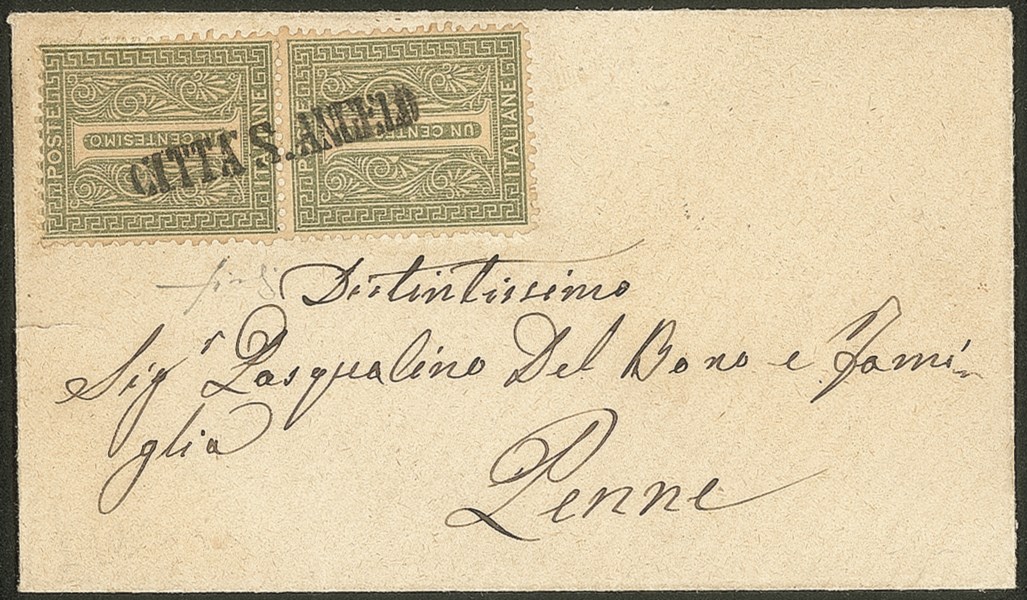 POSTE UN CENTESIMO ITALIANE
POSTE UN CENTESIMO ITALIANE
CITTA S. ANGELO
Distintissimo
Sigr Pasqualino Del Bono e Fami-
glia
Penne